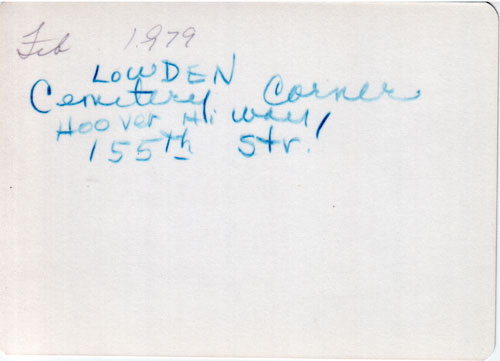 Feb 1979
LOWDEN
Cemetery Corner
Hoover Hi way/
155th Str.